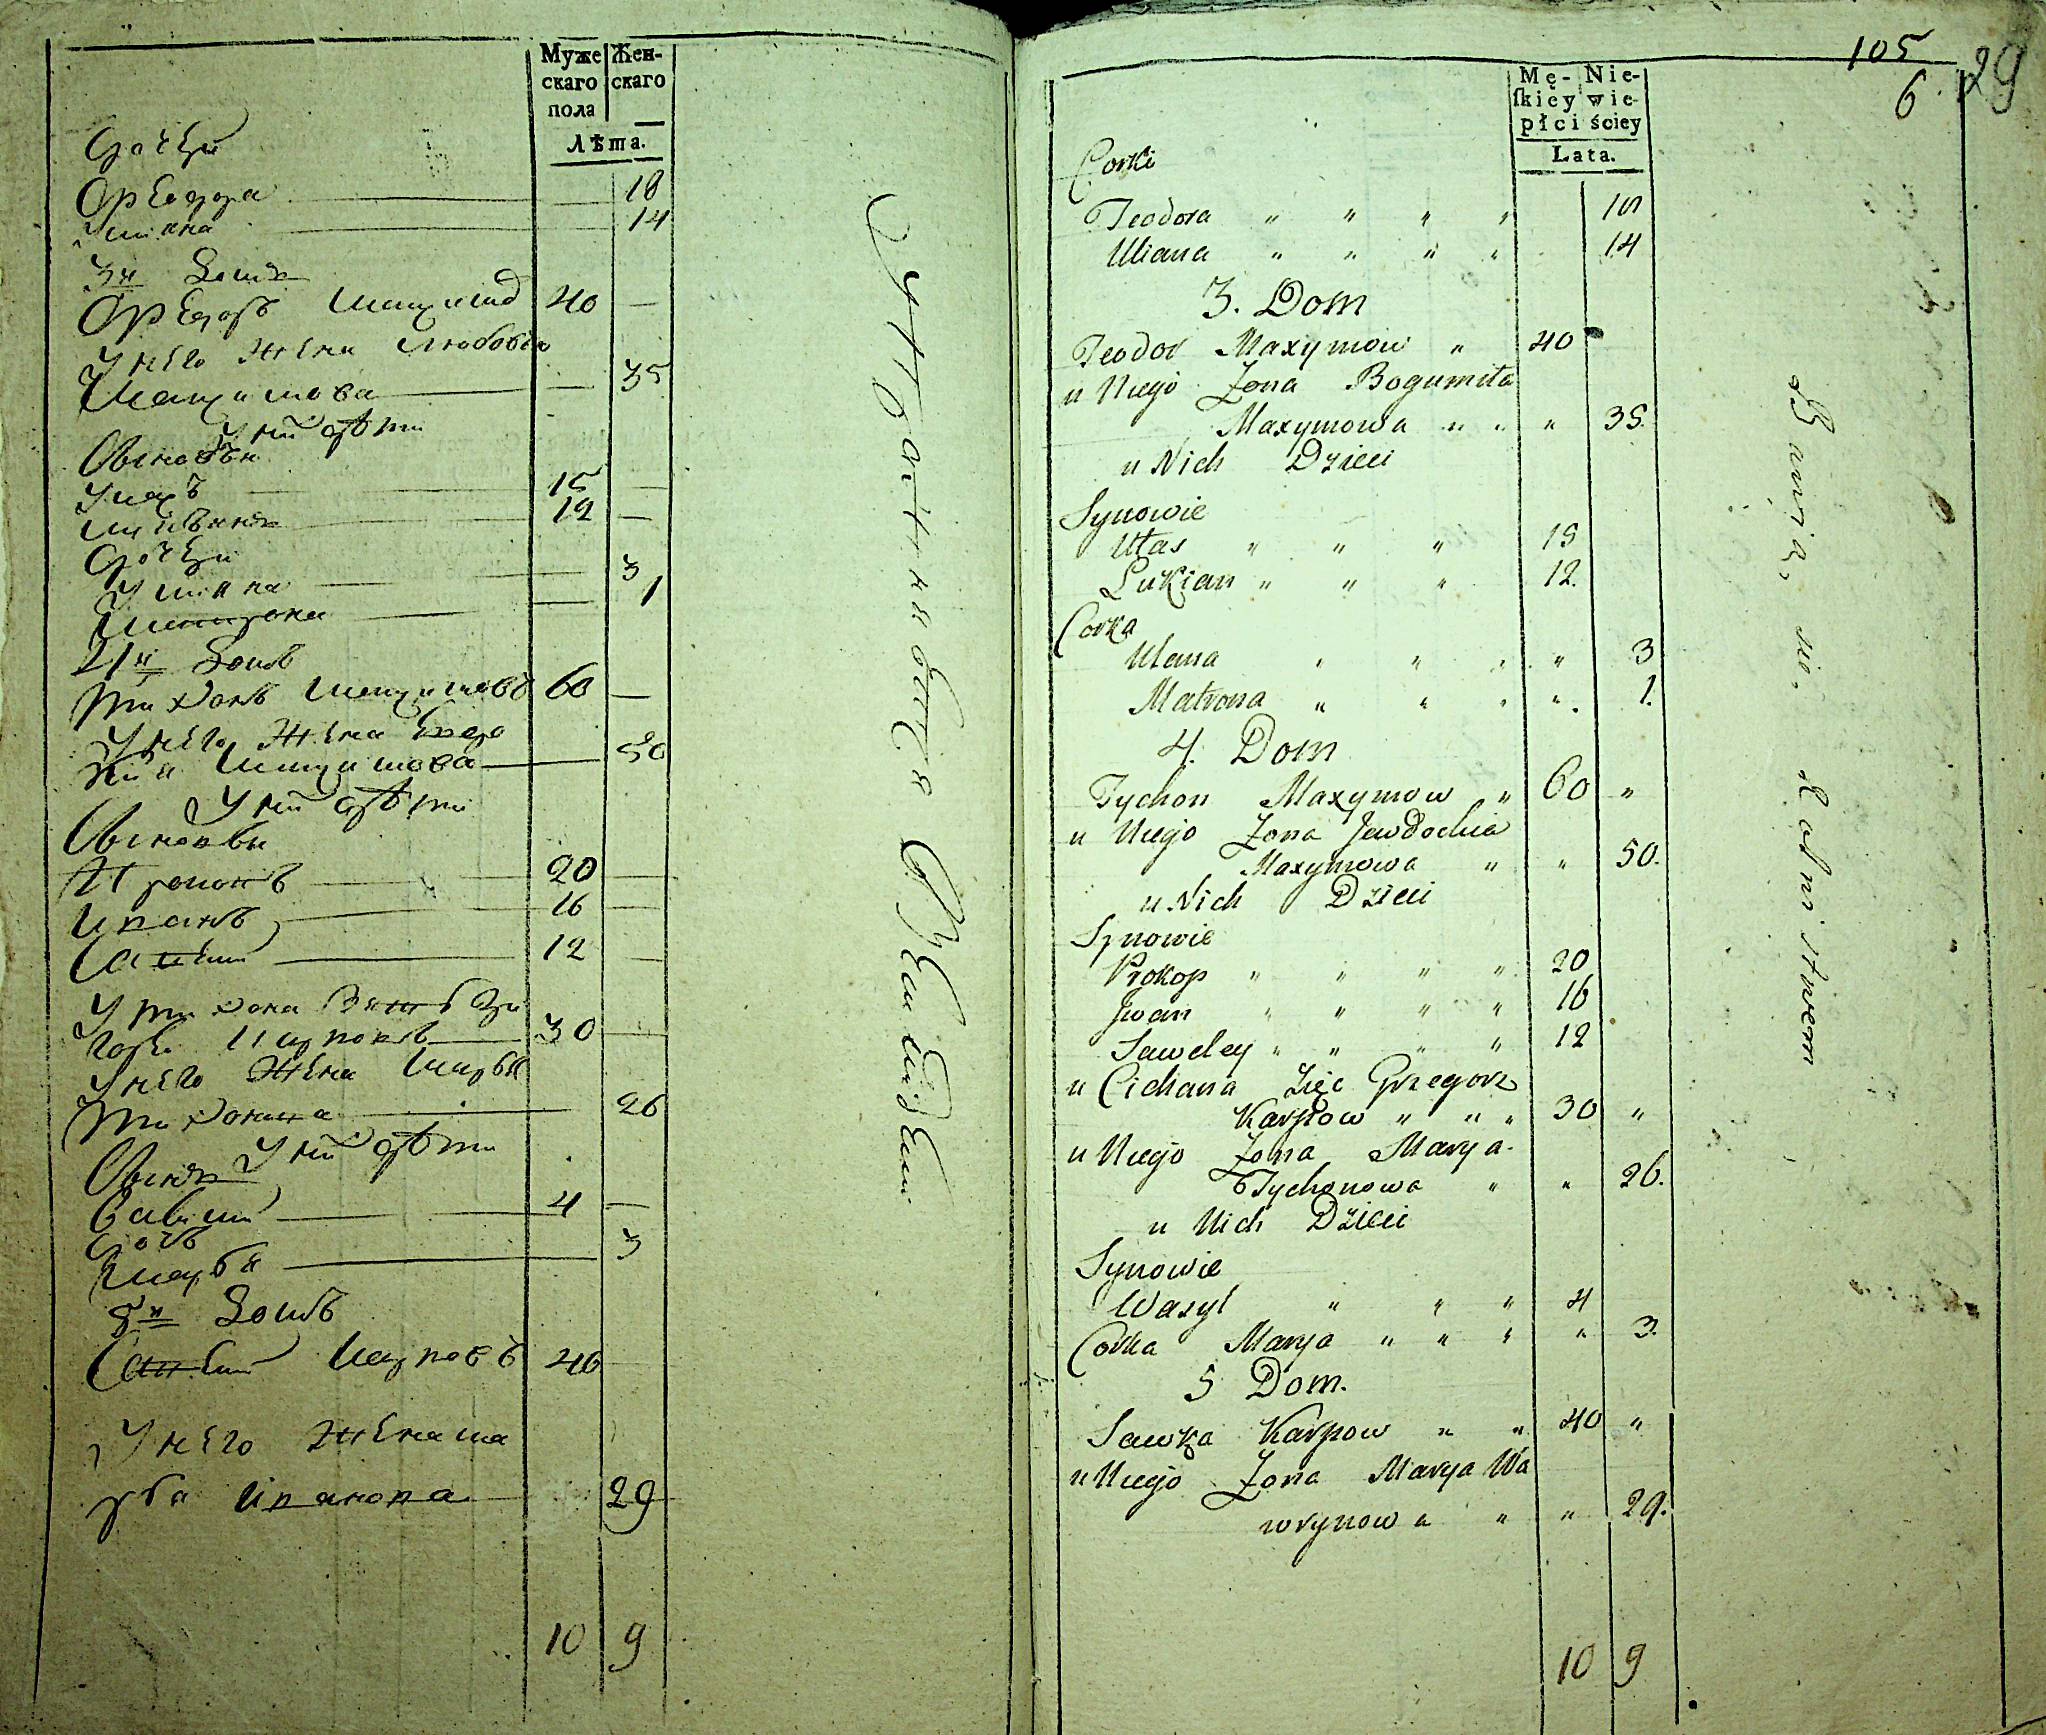 Муже Жен-
скаго скаго
пола
Лѣта.
дочки
Ѳеодора 18
Улiана 14
3й домъ
Ѳеодоръ Максимовъ 40
у него жена Любовь
Максимова 35
у них дѣти
Сыновьи
Уласъ 15
Лукьянъ 12
дочки
Улiана 3
Матрона 1
4й домъ
Тихонъ Максимовъ 60
у него жена Евдо
кия Максимова 50
у них дѣти
Сыновьи
Прокопъ 20
Иванъ 16
Савелий 12
у Тихона зять Гри
горей Карповъ 30
у него жена Марья
Тихонова 26
у них дѣти
Сынъ
Василий 4
дочь
Марья 3
5й домъ
Савелий Карповъ 40
у него жена Ма
рья Иванова 29
10 9
105
6. 29
Mę- Nie-
ſkiey wie-
płci ściey
Lata.
Corki
Teodora " " " " 18
Uliana " " " " 14
3. Dom
Teodor Maxymow " 40
u Niego Zona Bogumiła
Maxymowa " " " 35.
u Nich Dzieci
Synowie
Ułas " " " 15
Łukian " " " 12.
Corka
Ulana " " " " 3
Matrona " " " " 1.
4. Dom
Tychon Maxymow " 60 "
u Niego Zona Jewdochia
Maxymowa " " 50.
u Nich Dzieci
Synowie
Prokop " " " " 20
Jwan " " " " 16
Saweley " " " " 12
u Cichana Zięc Grzegorz
Karpow " " " 30 "
u Niego Zona Marya
Tychonowa " " 26.
u Nich Dzieci
Synowie
Wasyl " " " 4
Corka Marya " " " " 3.
5 Dom.
Sawka Karpow " " 40 "
u Niego Zona Marya Wa
wrynowa " " 29.
10 9
Bawią się Rolnictwem